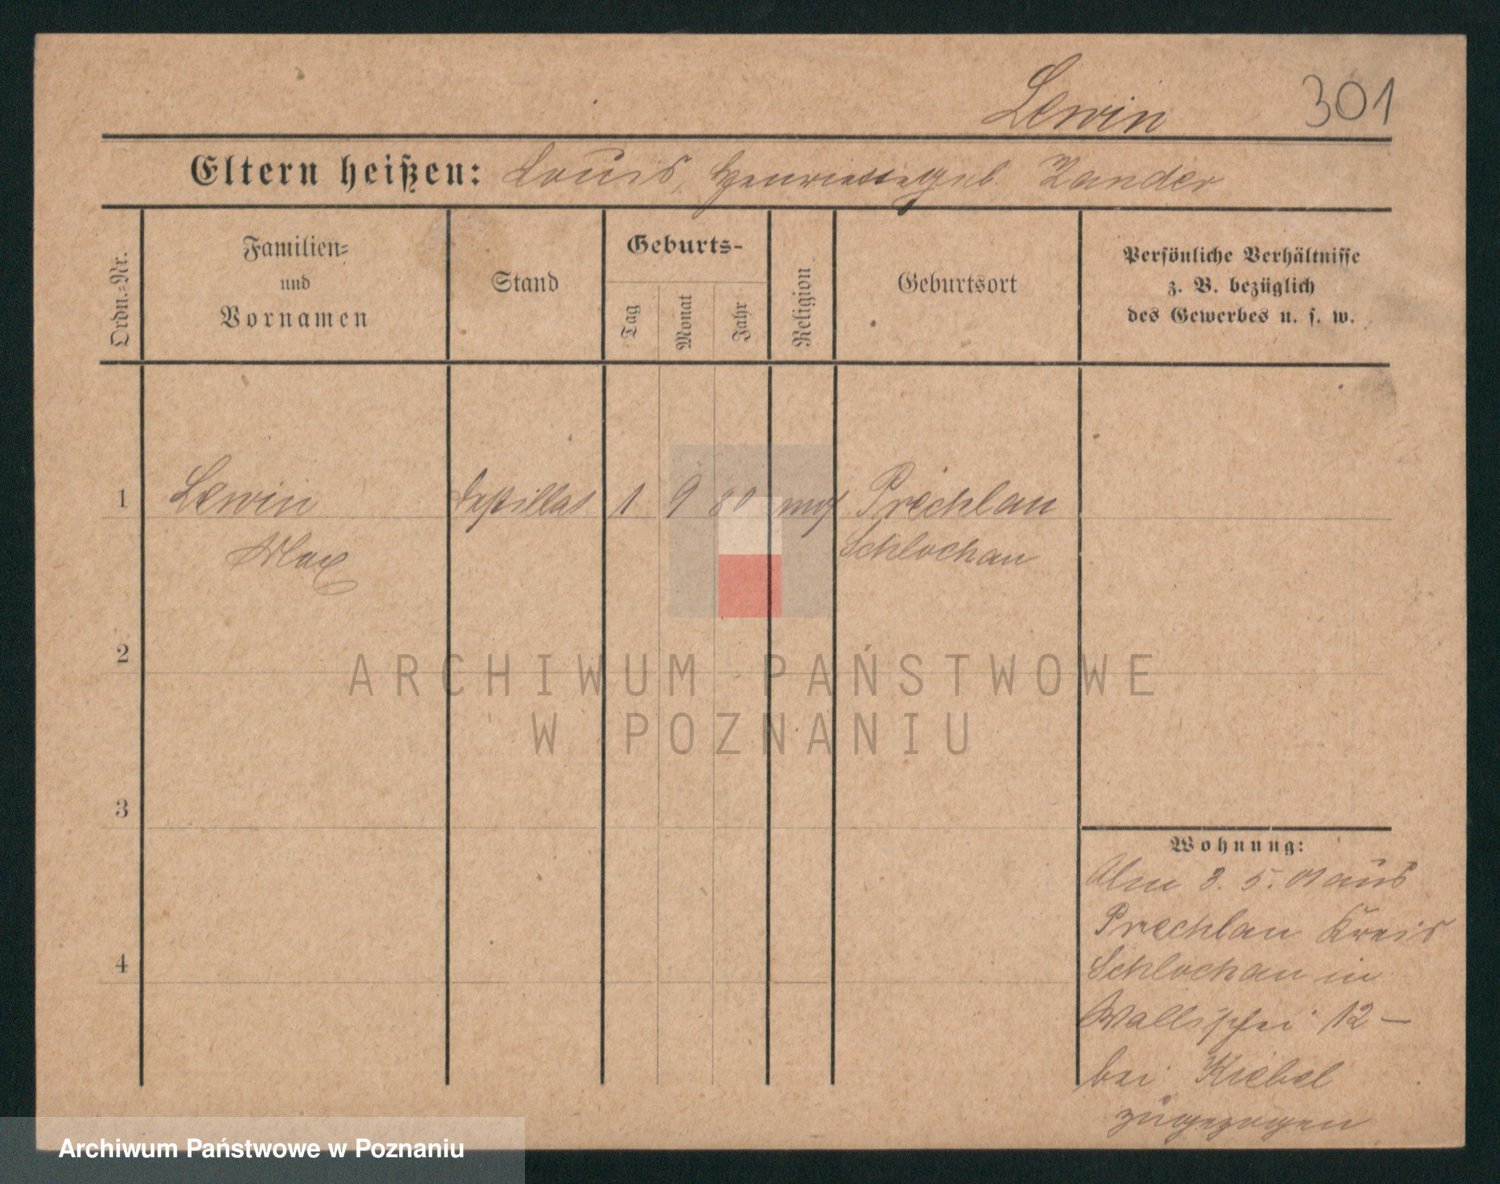 Lewin 301
Eltern heißen: Louis, Henriette geb. Zander
Ordn.-Nr.
Familien-
und
Vornamen
Stand
Geburts-
Tag
Monat
Jahr
Religion
Geburtsort
Persönliche Verhältnisse
z. B. bezüglich
des Gewerbes u. s. w.
1 Lewin Destillat 1 9 80 mos Prechlau
Max Schlochau
2
3
4
Wohnung:
Am 3. 5. 01 aus
Prechlau Kreis
Schlochau in
Wallischei 12 –
bei Kiebel
zugezogen
ARCHIWUM PAŃSTWOWE
W POZNANIU
Archiwum Państwowe w Poznaniu